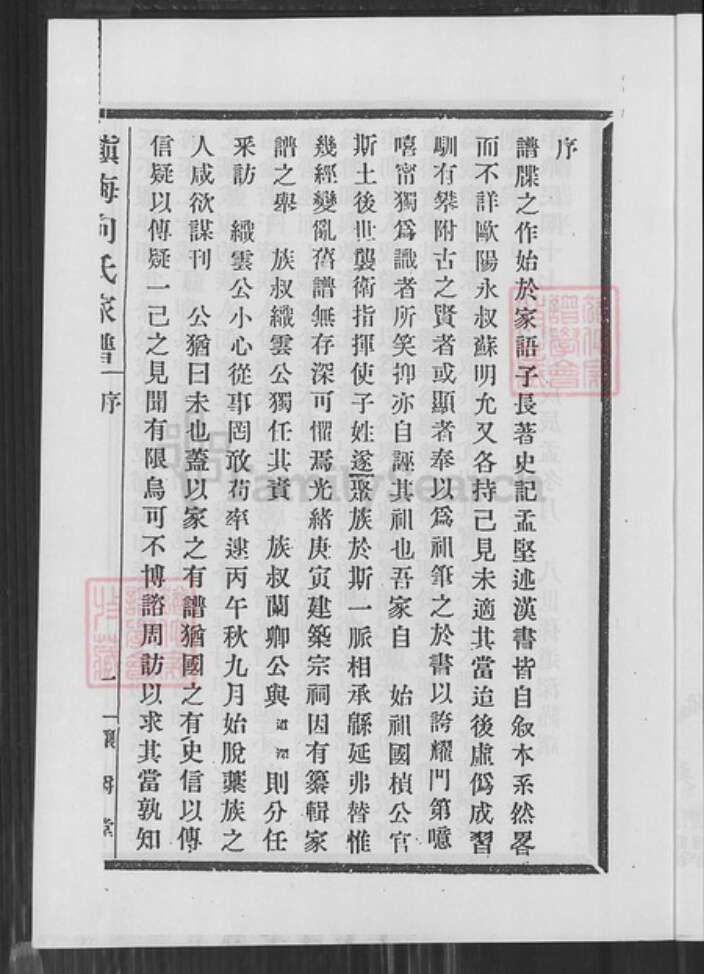 序
譜牒之作始於家語子長著史記孟堅述漢書皆自敍本系然畧
而不詳歐陽永叔蘇明允又各持己見未適其當迨後虛僞成習
馴有攀附古之賢者或顯者奉以爲祖筆之於書以誇耀門第噫
嘻甯獨爲識者所笑抑亦自誣其祖也吾家自　始祖國楨公官
斯土後世襲衛指揮使子姓遂聚族於斯一脈相承緜延弗替惟
幾經變亂舊譜無存深可懼焉光緒庚寅建築宗祠因有纂輯家
譜之舉　族叔織雲公獨任其責　族叔蘭卿公與道深則分任
釆訪　織雲公小心從事罔敢苟率逮丙午秋九月始脫藁族之
人咸欲謀刊　公猶曰未也蓋以家之有譜猶國之有史信以傳
信疑以傳疑一己之見聞有限烏可不博諮周訪以求其當孰知
鎮海向氏家譜　序　一
FamilySearch